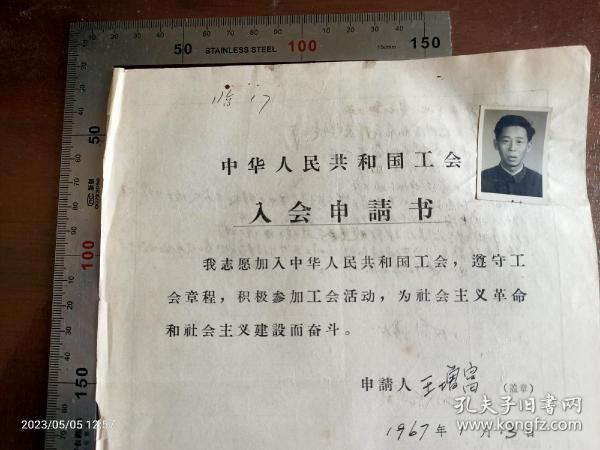 50 STAINLESS STEEL 100 150
15cm
50
100
150
临门
中华人民共和国工会
入会申請书
我志愿加入中华人民共和国工会，遵守工
会章程，积极参加工会活动，为社会主义革命
和社会主义建設而奋斗。
申請人 王增富 (盖章)
1967年1月13日
2023/05/05 12:57
孔夫子旧书网